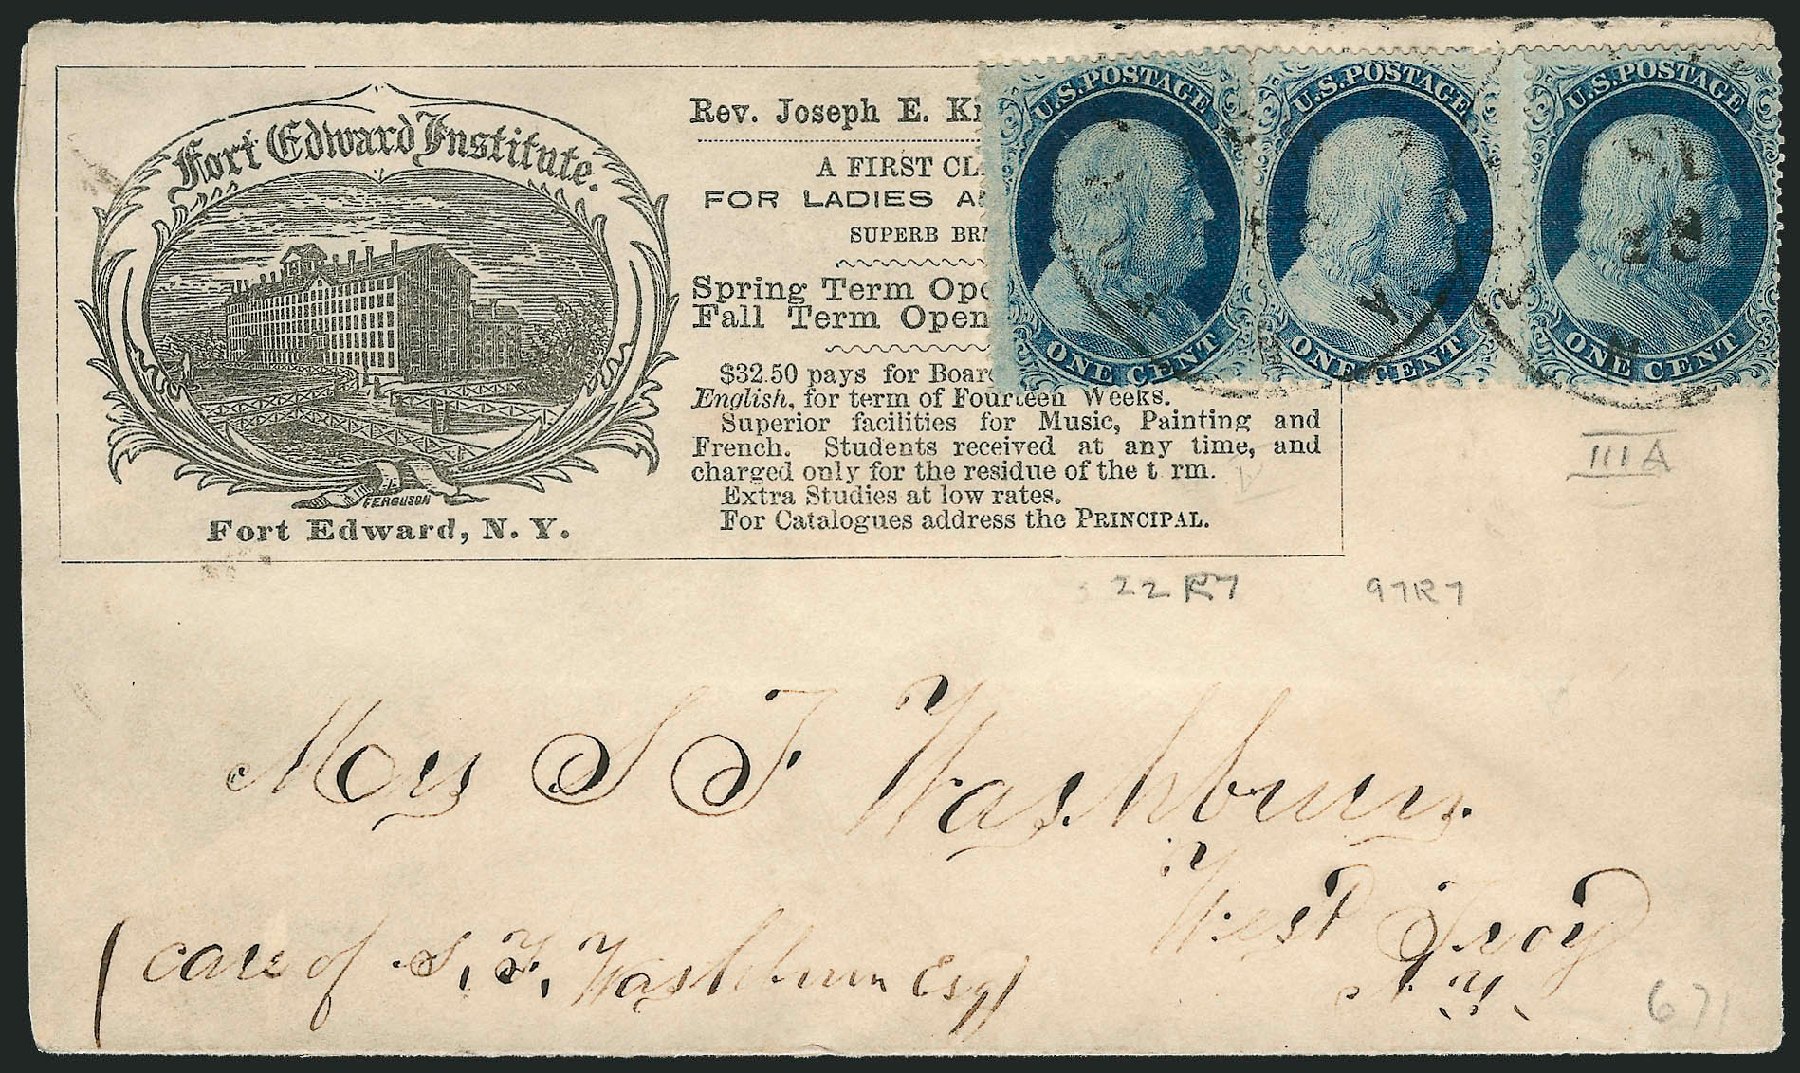 Fort Edward Institute.
FERGUSON
Fort Edward, N. Y.
Rev. Joseph E.
A FIRST
FOR LADIES
SUPERB
Spring Term
Fall Term Open
$32.50 pays for Board
English, for term of Fourteen Weeks.
Superior facilities for Music, Painting and
French. Students received at any time, and
charged only for the residue of the t rm.
Extra Studies at low rates.
For Catalogues address the PRINCIPAL.
U.S. POSTAGE
ONE CENT
U.S. POSTAGE
ONE CENT
U.S. POSTAGE
ONE CENT
III A
22 R7
97R7
Mrs S F Washburn.
West Troy
N.Y.
(care of S. F. Washburn Esq)
671